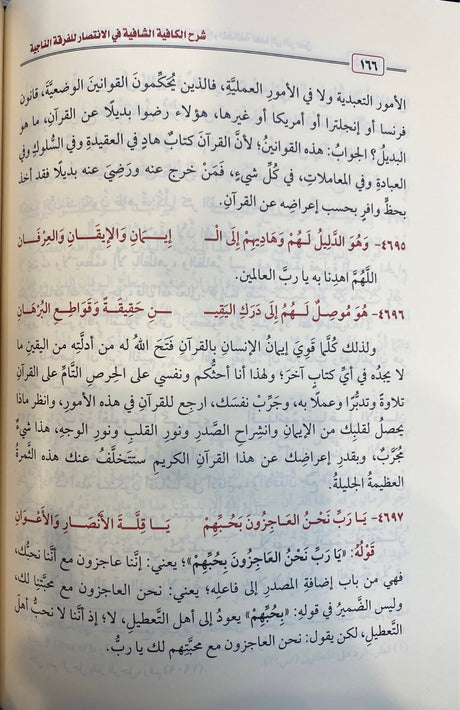 شرح الكافية الشافية في الانتصار للفرقة الناجية
١٦٦
الأمور التعبدية ولا في الأمورِ العمليَّةِ، فالذين يُحَكِّمونَ القوانينَ الوضعيَّةَ، قانون
فرنسا أو إنجلترا أو أمريكا أو غيرها، هؤلاء رضوا بديلًا عن القرآنِ، ما هو
البديلُ؟ الجوابُ: هذه القوانينُ؛ لأنَّ القرآنَ كتابٌ هادٍ في العقيدةِ وفي السُّلوكِ وفي
العبادةِ وفي المعاملاتِ، في كُلِّ شيءٍ، فَمَنْ خرج عنه ورَضِيَ عنه بديلًا فقد أخذ
بحظٍّ وافرٍ بحسب إعراضِه عن القرآنِ.
٤٦٩٥- وَهُوَ الدَّلِيلُ لَهُمْ وَهَادِيهِمْ إِلَى الْـ إِيـمَانِ وَالْإِيقَـانِ وَالْعِرْفَـانِ
اللَّهُمَّ اهدِنا به يا ربَّ العالمين.
٤٦٩٦- هُوَ مُوصِلٌ لَهُـمُ إِلَى دَرَكِ الْيَقِيـ ـنِ حَقِيقَةً وَقَوَاطِعِ الْبُرْهَانِ
ولذلك كُلَّما قَوِيَ إيمانُ الإنسانِ بالقرآنِ فَتَحَ اللهُ له من أدلَّتِه من اليقينِ ما
لا يجدُه في أيِّ كتابٍ آخرَ؛ ولهذا أنا أحثُّكم ونفسي على الحِرصِ التَّامِّ على القرآنِ
تلاوةً وتدبُّرًا وعملًا به، وجَرِّبْ نفسَك، ارجع للقرآنِ في هذه الأمورِ، وانظر ماذا
يحصلُ لقلبِك من الإيمانِ وانشراحِ الصَّدرِ ونورِ القلبِ ونورِ الوجهِ، هذا شيءٌ
مُجَرَّبٌ، وبقدرِ إعراضِك عن هذا القرآنِ الكريمِ ستتَخَلَّفُ عنك هذه الثَّمرةُ
العظيمةُ الجليلةُ.
٤٦٩٧- يَا رَبِّ نَحْنُ الْعَاجِزُونَ بِحُبِّهِمْ يَـا قِلَّـةَ الْأَنْصَـارِ وَالْأَعْـوَانِ
قَوْلُهُ: «يَا رَبِّ نَحْنُ الْعَاجِزُونَ بِحُبِّهِمْ»؛ يعني: إنَّنا عاجزون مع أنَّنا نحبُّك،
فهي من باب إضافةِ المصدرِ إلى فاعلِه؛ يعني: نحن العاجزون مع محبَّتِنا لك،
وليس الضَّميرُ في قولِه: «بِحُبِّهِمْ» يعودُ إلى أهلِ التَّعطيلِ، لا؛ إذ أنَّنا لا نحبُّ أهلَ
التَّعطيلِ، لكن يقول: نحن العاجزون مع محبَّتِهم لك يا ربُّ.